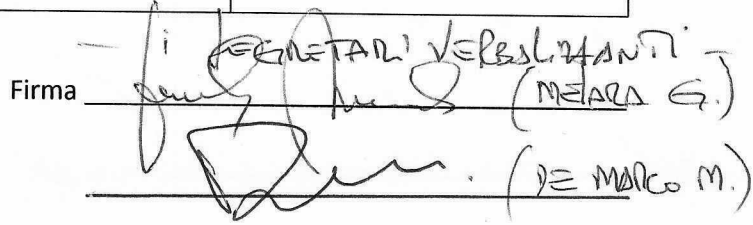 – i SEGRETARI VERBALIZZANTI –
Firma (MELARA G.)
(DE MARCO M.)